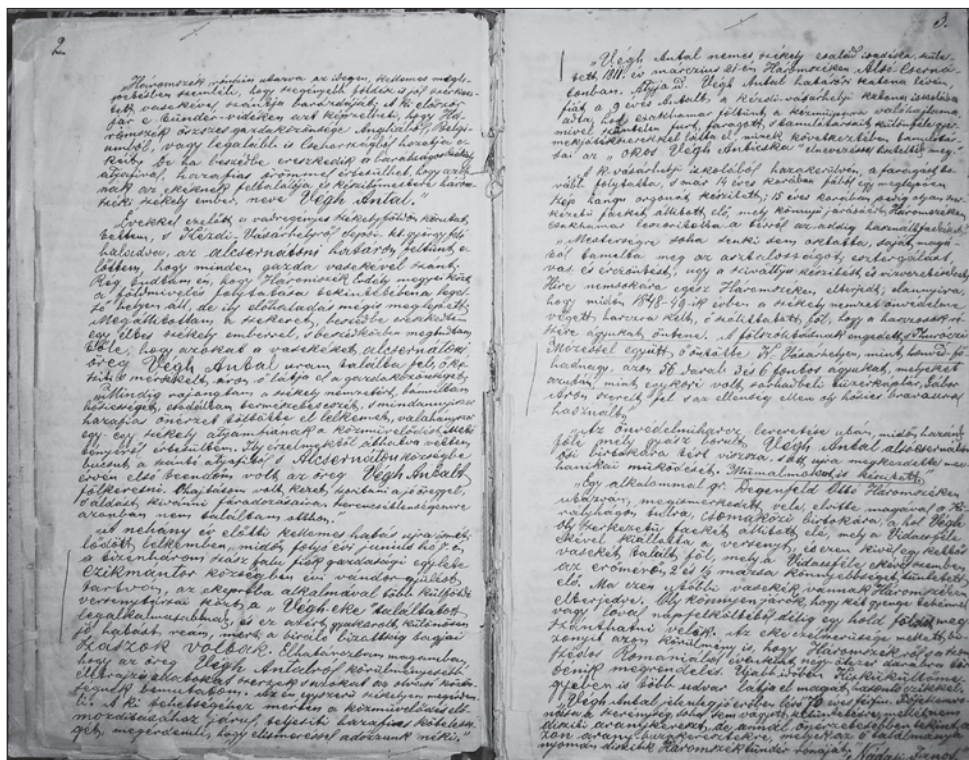 2.
„Háromszék rónáin utazva az idegen, kellemes megle-
petésben szemléli, hogy legszegényebb földész is jól szerkesz-
tett vasekével szántja barázdáját. A ki először
jár e tündér-vidéken azt képzelheti, hogy Há-
romszék összes gazdaközönsége Angliából, Belgi-
umból, vagy legalább is Csehországból hozatja e-
kéit; de ha beszédbe ereszkedik a barátságos székely
atyafival, hazafias örömmel értesülhet, hogy azok-
nak az ekéknek feltalálója és készítőmestere három-
széki székely ember, neve Végh Antal."
„Évekkel ezelőtt a vadregényes székely földön körutat
tettem, s Kézdi-Vásárhelyről Sepsi-Szt-György felé
haladva, az alcsernátoni határon feltünt e-
lőttem, hogy minden gazda vasekével szánt.
Rég tudtam én, hogy Háromszék Erdély megyéi közt
a földmivelés folytatása tekintetében a legel-
ső helyen áll, de ily előhaladás mégis meglepett.
Megállítottam a szekeret, beszédbe ereszkedtem
egy éltes székely emberrel, s beszédközben megtudtam
tőle, hogy azokat a vasekéket alcsernátoni
öreg Végh Antal uram találta fel, ő ké-
szíti s mérsékelt áron ő látja el a gazdaközönséget.
„Mindig rajongtam a székely nemzetért, bámultam
hősiességét, csodáltam természeteszét, s mindannyiszor
hazafias önérzet töltötte el lelkemet, valahányszor
egy-egy székely atyámfiának a közművelődés
tényéről értesültem. Ily érzelmektől áthatva vettem
bucsut a szántó atyafitól s Alcsernáton községbe
érve első teendőm volt az öreg Végh Antalt
fölkeresni. Óhajtásom volt kezet szorítani a jó öreggel,
s áldást kívánni fáradozásaira, szerencsétlenségemre
azonban nem találtam otthon."
„A néhány év előtti kellemes hatás ujra ismét-
lődött lelkemben, midőn folyó évi junius hó 7-én
a tizenhárom szász falu fiók gazdasági egylete
Czikmántor községben évi vándor-gyűlést
tartván, az ekepróba alkalmával több külföldi
versenytársai közt a „Végh-eke" találtatott
legalkalmasabbnak, és ez azért gyakorolt különösen
jó hatást reám, mert a biráló bizottság tagjai
szászok voltak. Elhatároztam magamban,
hogy az öreg Végh Antalról körülményesebb
életrajzi adatokat szerzek s azokat az olvasó közön-
ségnek bemutatom. Az én egyszerű székelyem megérdem-
li. A ki tehetségéhez mérten a közművelődés elő-
mozdításához járul, teljesíti hazafias kötelessé-
gét, megérdemli, hogy elismeréssel adózzunk néki."
3.
„Végh Antal nemes székely család ivadéka, szüle-
tett 1811. év márczius 21-én Háromszéken Alsó-Cserná-
tonban. Atyja id. Végh Antal határőr katona lévén,
fiát a 9 éves Antalt a kézdi-vásárhelyi katona iskolába
adta, hol csakhamar föltünt a kézimunkára való hajlama,
mivel szüntelen furt, faragott, s tanulótársait különféle gyer-
mekjátékszerekkel látta el, minek következtében tanulótár-
sai az „okos Végh Anticska" elnevezéssel tisztelték meg."
„A k-vásárhelyi iskolából hazakerülvén, a faragást to-
vább folytatta, s már 14 éves korában fából egy meglepően
szép hangu orgonát készített; 15 éves korában pedig olyan szer-
kezetű faekét állított elő, mely könnyü járásáért Háromszéken
csakhamar leszorította a térről az addig használt faekéket."
„Mesterségre soha senki sem oktatta, saját magá-
tól tanulta meg az asztalosságot, esztergálást,
vas és ércöntést, ugy a szivattyú készítést és vizvezetést.
Híre nemsokára egész Háromszéken elterjedt, elannyira,
hogy midőn 1848-49-ik évben a székely nemzet önvédelme
végett harczra kelt, ő szólíttatott föl, hogy a harczosok ré-
szére ágyukat öntene. A fölszólításnak engedett, s Turóczi
Mózessel együtt ő öntötte K-Vásárhelyen, mint honvéd fő-
hadnagy, azon 56 darab 3 és 6 fontos ágyukat, melyeket
azután, mint egykori volt szabadbeli tüzérkáplár, Gábor
Áron szerelt fel s az ellenség ellen oly hősies bravourral
használt."
„Az önvédelmiharcz leveretése után, midőn hazánk
fölé mély gyász borult, Végh Antal alsócsernátoni
ősi birtokára tért vissza, s ott ujra megkezdette me-
chanikai müködését. Malmokat is készített."
„Egy alkalommal gr. Degenfeld Ottó Háromszéken
utazván, megismerkedett vele, elvitte magával a Ki-
rályhágón tulra, csomaközi birtokára, a hol Végh
oly szerkezetű faekét állított elő, mely a Vidacsféle
ekével kiállotta a versenyt, és ezen kivül egy kettős
vasekét talált föl, mely a Vidacsféle ekével szemben
az erőmérőn 2 és ½ mázsa könnyebbséget tüntetett
elő. Ma ezen utóbbi vasekék vannak Háromszéken
elterjedve. Oly könnyen járók, hogy két gyenge tehénnel
vagy lóval napfelköltétől délig egy hold földet meg
szánthatni velök. Az eke czélszerűsége mellett bi-
zonyít azon körülmény is, hogy Háromszékről s a szom-
szédos Romániából évenként négy-ötszáz darabra tör-
ténik megrendelés. Ujabb időben Kisküküllőme-
gyében is több udvar látja el magát hasonló ekékkel.
„Végh Antal jelenleg jó erőben lévő 70 éves férfiu.